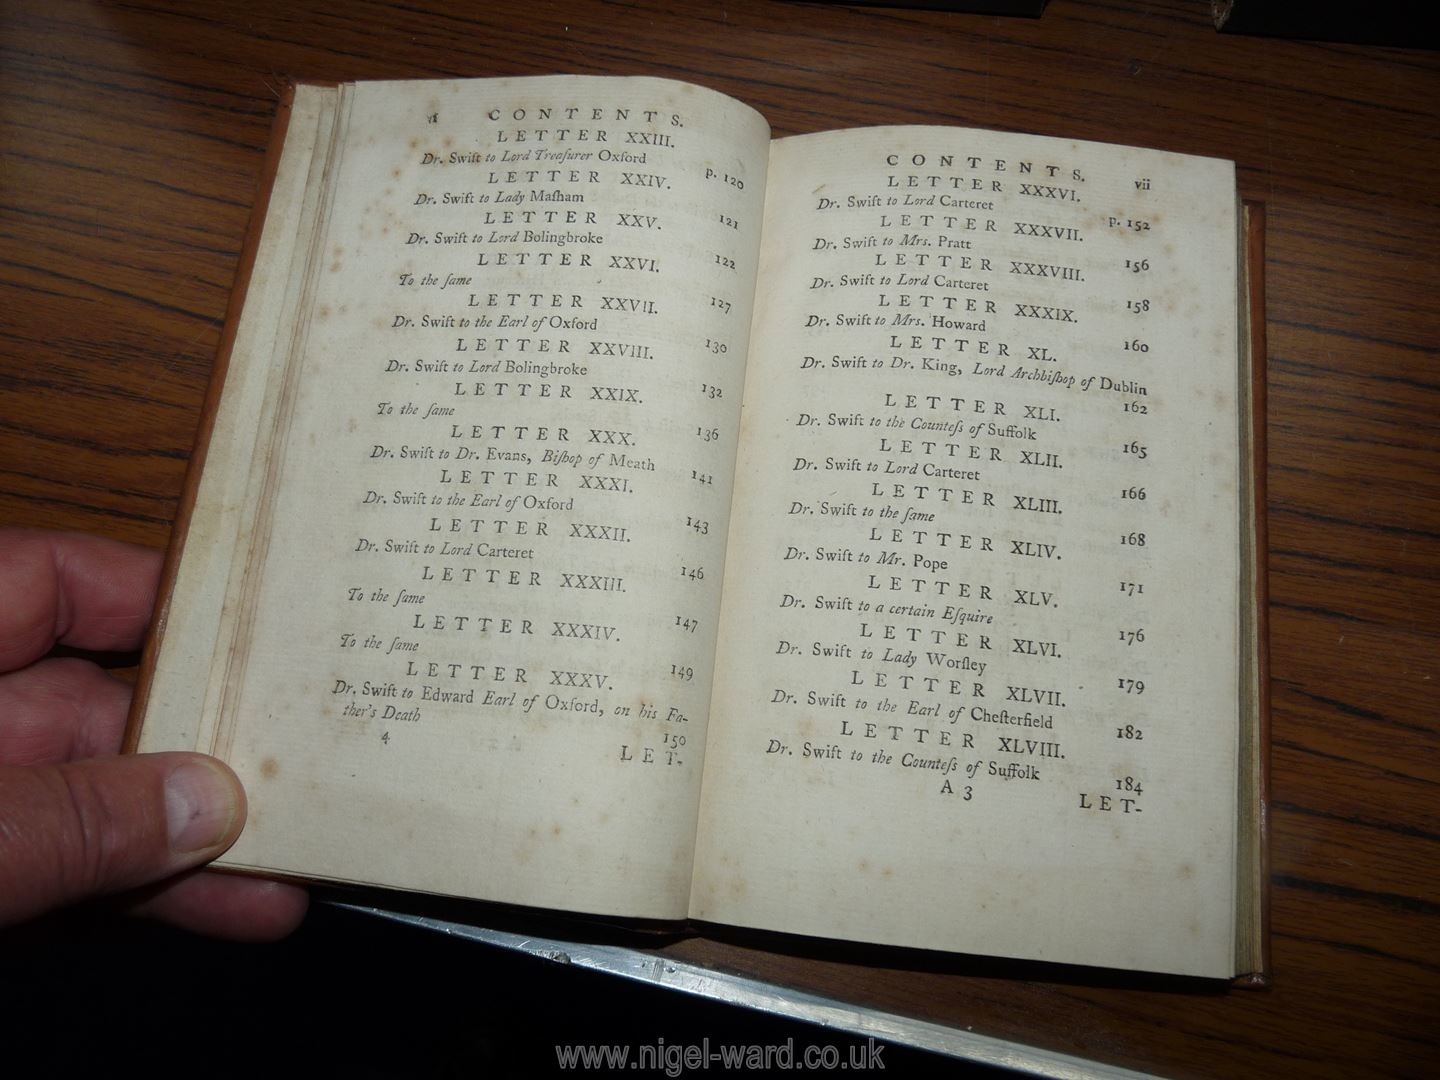 vi CONTENTS.
LETTER XXIII.
Dr. Swift to Lord Treaſurer Oxford p. 120
LETTER XXIV.
Dr. Swift to Lady Maſham 121
LETTER XXV.
Dr. Swift to Lord Bolingbroke 122
LETTER XXVI.
To the ſame 127
LETTER XXVII.
Dr. Swift to the Earl of Oxford 130
LETTER XXVIII.
Dr. Swift to Lord Bolingbroke 132
LETTER XXIX.
To the ſame 136
LETTER XXX.
Dr. Swift to Dr. Evans, Biſhop of Meath 141
LETTER XXXI.
Dr. Swift to the Earl of Oxford 143
LETTER XXXII.
Dr. Swift to Lord Carteret 146
LETTER XXXIII.
To the ſame 147
LETTER XXXIV.
To the ſame 149
LETTER XXXV.
Dr. Swift to Edward Earl of Oxford, on his Fa-
ther's Death 150
4 LET-
CONTENTS. vii
LETTER XXXVI.
Dr. Swift to Lord Carteret p. 152
LETTER XXXVII.
Dr. Swift to Mrs. Pratt 156
LETTER XXXVIII.
Dr. Swift to Lord Carteret 158
LETTER XXXIX.
Dr. Swift to Mrs. Howard 160
LETTER XL.
Dr. Swift to Dr. King, Lord Archbiſhop of Dublin
162
LETTER XLI.
Dr. Swift to the Counteſs of Suffolk 165
LETTER XLII.
Dr. Swift to Lord Carteret 166
LETTER XLIII.
Dr. Swift to the ſame 168
LETTER XLIV.
Dr. Swift to Mr. Pope 171
LETTER XLV.
Dr. Swift to a certain Eſquire 176
LETTER XLVI.
Dr. Swift to Lady Worſley 179
LETTER XLVII.
Dr. Swift to the Earl of Cheſterfield 182
LETTER XLVIII.
Dr. Swift to the Counteſs of Suffolk 184
A 3 LET-
www.nigel-ward.co.uk